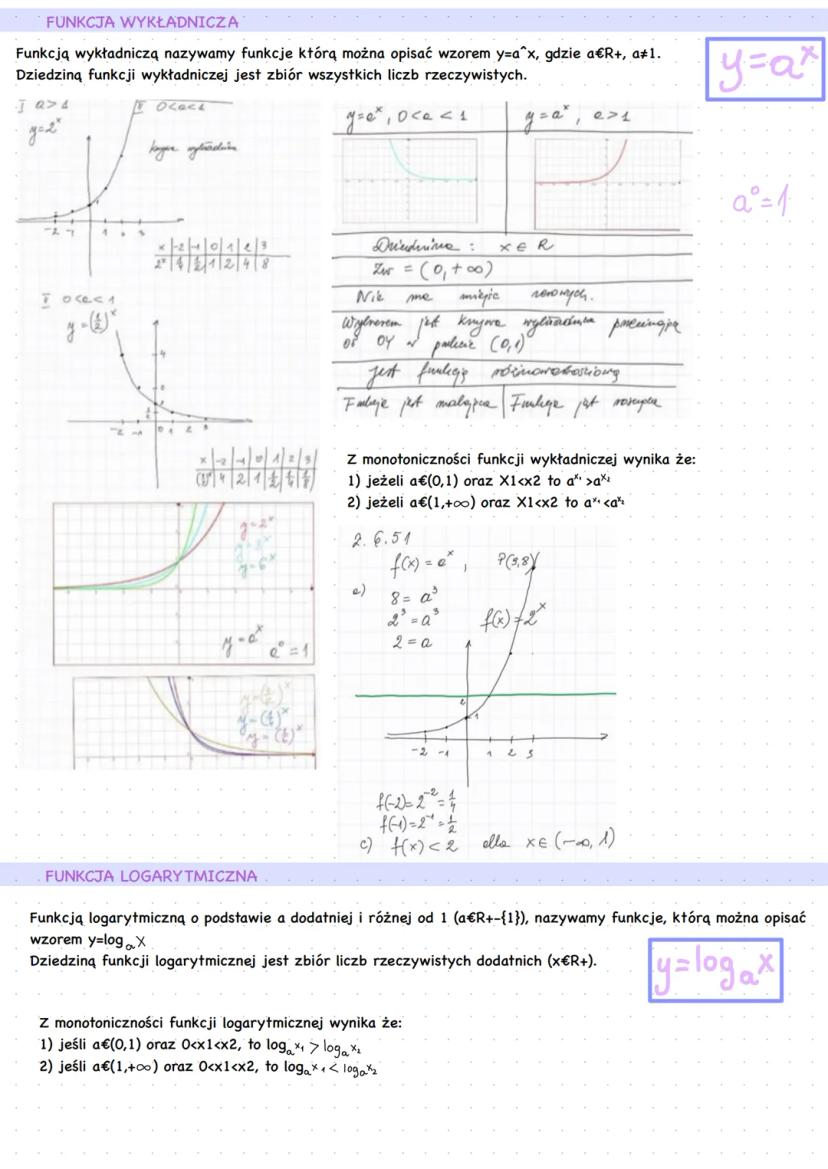 FUNKCJA WYKŁADNICZA
Funkcją wykładniczą nazywamy funkcje którą można opisać wzorem y=a^x, gdzie a€R+, a≠1.
Dziedziną funkcji wykładniczej jest zbiór wszystkich liczb rzeczywistych.
y=aˣ
a⁰=1
I a>1
II 0<a<1
y=2ˣ
krzywa wykładnicza
-2 -1 1 2 3
x | -2 | -1 | 0 | 1 | 2 | 3
2ˣ | 1/4 | 1/2 | 1 | 2 | 4 | 8
II 0<a<1
y=(1/2)ˣ
-2 -1 0 1 2 3
x | -2 | -1 | 0 | 1 | 2 | 3
(1/2)ˣ | 4 | 2 | 1 | 1/2 | 1/4 | 1/8
y=aˣ, 0<a<1 | y=aˣ, a>1
Dziedzina : x∈R
Zw = (0,+∞)
Nie ma miejsc zerowych.
Wykresem jest krzywa wykładnicza przecinająca
oś OY w punkcie (0,1)
Jest funkcją różnowartościową
Funkcja jest malejąca | Funkcja jest rosnąca
Z monotoniczności funkcji wykładniczej wynika że:
1) jeżeli a€(0,1) oraz X1<x2 to aˣ¹ >aˣ²
2) jeżeli a€(1,+∞) oraz X1<x2 to aˣ¹ <aˣ²
y=2ˣ
y=6ˣ
y=aˣ a⁰=1
y=(1/2)ˣ
2.6.51
f(x)=aˣ, P(3,8)
a) 8=a³
2³=a³ f(x)=2ˣ
2=a
2
1
-2 -1 1 2 3
f(-2)=2⁻²=1/4
f(-1)=2⁻¹=1/2
c) f(x)<2 dla x∈(-∞,1)
FUNKCJA LOGARYTMICZNA
Funkcją logarytmiczną o podstawie a dodatniej i różnej od 1 (a€R+-{1}), nazywamy funkcje, którą można opisać
wzorem y=logₐx
Dziedziną funkcji logarytmicznej jest zbiór liczb rzeczywistych dodatnich (x€R+).
y=logₐx
Z monotoniczności funkcji logarytmicznej wynika że:
1) jeśli a€(0,1) oraz 0<x1<x2, to logₐx₁ > logₐx₂
2) jeśli a€(1,+∞) oraz 0<x1<x2, to logₐx₁ < logₐx₂